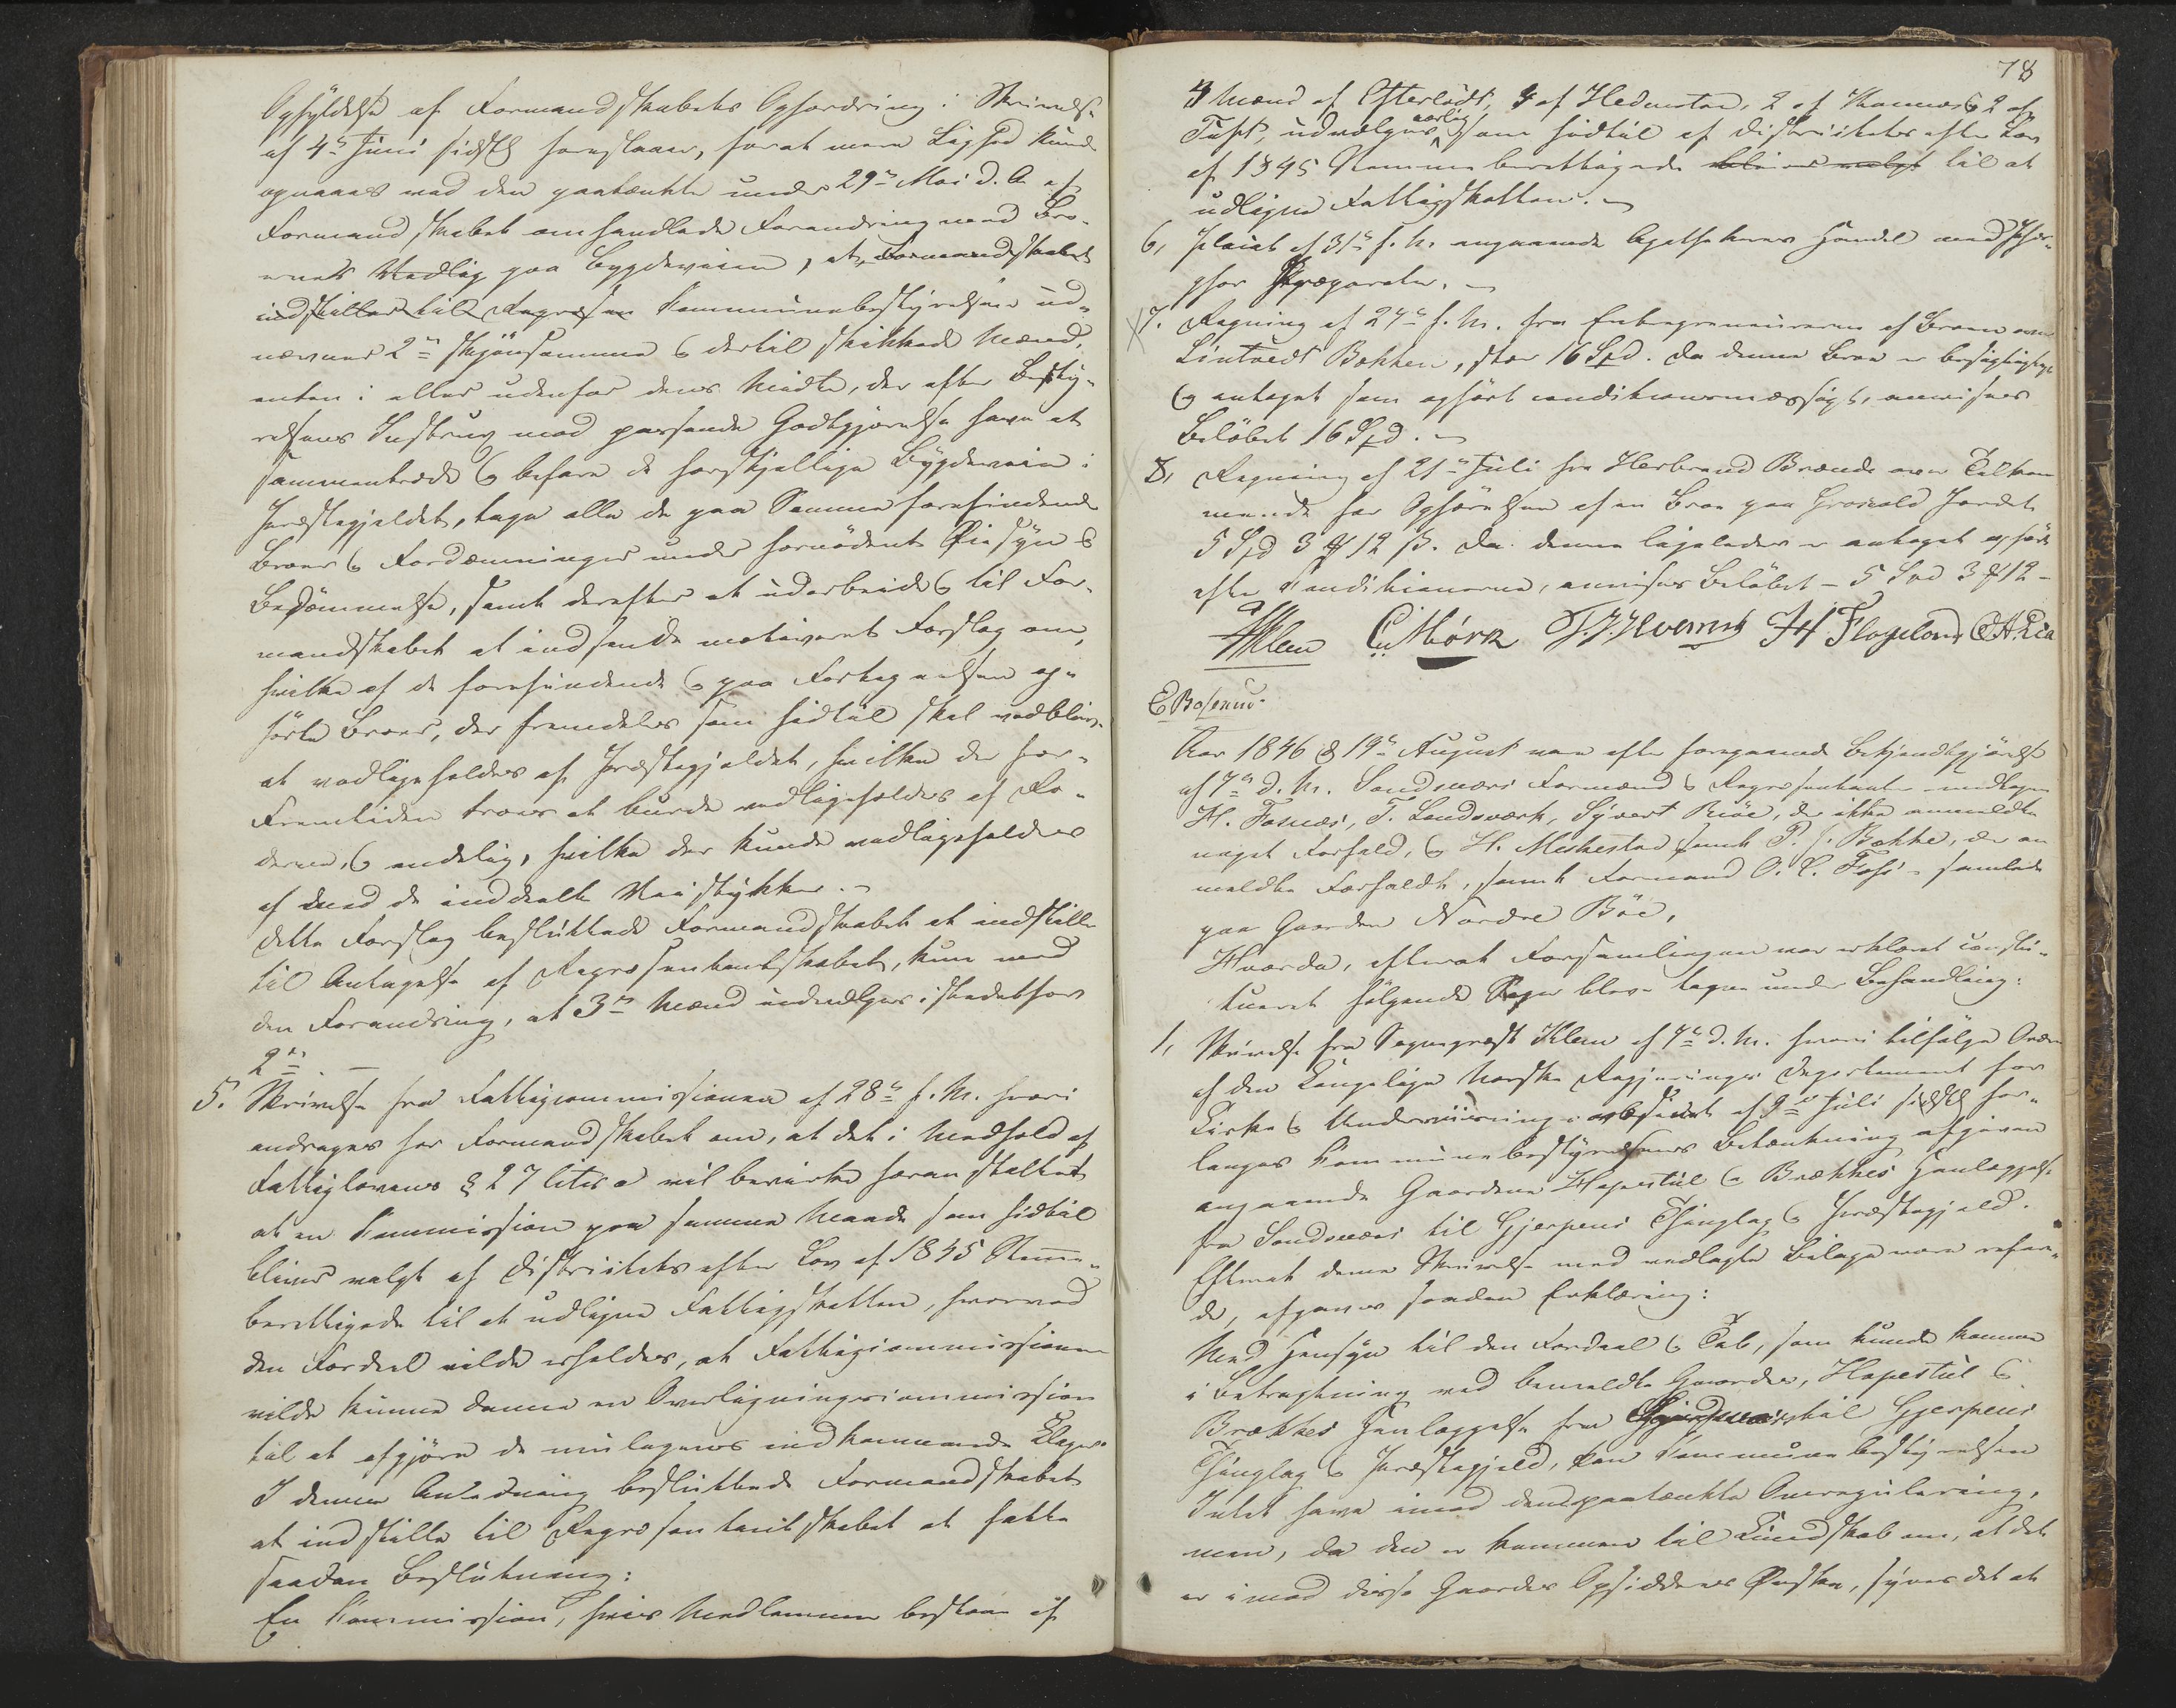 Opfyldelse af Formandskabets Opfordring i Skrivelse
af 4de Juni sidstl foreslaaer, forat mere Lighed kunde
opnaaes ved den paatænkte under 29de Mai d. A. af
Formandskabet omhandlede Forandring med Bro-
ernes Vedlig paa Bygdeveiene, at Formandskabet
indstiller til Repræsen Kommunebestyrelsen ud-
nævner 2de skjønsomme og dertil skikkede Mænd,
enten i eller udenfor dens Midte, der efter Besty-
relsens Instrux mod passende Godtgjørelse have at
sammentræde og befare de forskjellige Bygdeveie i
Præstegjeldet, tage alle de paa Samme forefindende
Broer og Fordæmninger under fornødent Øiesyn og
Bedømmelse, samt derefter at udarbeide og til For-
mandskabet at indsende motiveret Forslag om,
hvilke af de forefindende og paa Fortegnelsen op-
førte Broer, der fremdeles som hidtil skal vedblive
at vedligeholdes af Præstegjeldet, hvilke der for-
Fremtiden troes at burde vedligeholdes af Ro-
derne, og endelig, hvilke der kunde vedligeholdes
af med de inddeelte Veistykker. –
Dette Forslag besluttede Formandskabet at indstille
til Antagelse af Repræsentantskabet, kun med
den Forandring, at 3de Mænd udvælges istedetfor
2de –
5. Skrivelse fra Fattigcommissionen af 28de f. M. hvori
andrages for Formandskabet om, at det i Medhold af
Fattiglovens § 27 litr. a vil bevirke foranstaltet
at en Kommission paa samme Maade som hidtil
bliver valgt af Districtets efter Lov af 1845 Stemme-
berettigede til at udligne Fattigskatten, hvorved
den Fordeel vilde erholdes, at Fattigcommissionen
vilde kunne danne en Overligningscommission
til at afgjøre de muligens indkommende Klager.
I denne Anledning besluttede Formandskabet
at indstille til Repræsentantskabet at fatte
saadan Beslutning:
En Kommission, hvis Medlemmer bestaae af
78
4 Mænd af Efterlødt, 4 af Hedensta, 2 af Komnæs og 2 af
Tuft, udvælges aarlig som hidtil af Districtets efter Lov
af 1845 Stemmeberettigede blive valgt til at
udligne Fattigskatten. –
6, Placat af 31te f. M. angaaende Apothekeres Handel med Phos-
phor Præparater. –
7. Regning af 24de f. M. fra Entrepreneurerne af Broen over
Lintvedt Bækken, stor 16 Spd. Da denne Broe er besigtiget
og antaget som opført conditionsmæssigt, anvises
Beløbet 16 Spd. –
8, Regning af 21de Juli fra Herbrand Brænde over Tilkom-
mende for Opførelsen af en Broe paa Grosvold Jordet
5 Spd 3 # 12 ß. Da denne ligeledes er antaget opført
efter Conditionerne, anvises Beløbet – 5 Spd 3 # 12 –
Klem C. Mørk T. J. Hvemb H Flageland C. A. Lia
E Bossum.
Aar 1846 d 19de August vare efter foregaaende Bekjendtgjørelse
af 7de d. M. Sandsværs Formænd og Repræsentanter undtagen
H. Fosnæs, T. Landsværk, Syvert Bøe, der ikke anmeldte
noget Forfald, og H. Meskestad samt P. J. Bække, der an
meldte Forfaldt, samt Formand O. C. Foss – samlede
paa Gaarden Nordre Bøe,
Hvorda, efterat Forsamlingen var erklæret constitu-
tueret følgende Sager bleve tagne under Behandling:
1, Skrivelse fra Sognepræst Klem af 7de d. M. hvori tilfølge Ordre
af den Kongelige Norske Regjerings Departement for
Kirke og Underviisnings af 9de Juli sidstl for-
langes Kommunebestyrelsens Betænkning afgiven
angaaende Gaardene Hapestul og Brækkes Henlæggelse
fra Sandsvær til Gjerpens Thinglag og Præstegjeld.
Efterat denne Skrivelse med vedlagte Bilage vare refere-
de, afgaves saadan Erklæring:
Med Hensyn til den Fordeel og Tab, som kunde komme
i Betragtning ved bemeldte Gaardes, Hapestul og
Brækkes Henlæggelse fra Sandsvær til Gjerpens
Thinglag og Præstegjeld, kan Kommunebestyrelsen
Intet have imod den paatænkte Omregulering,
men, da den er kommen til Kundskab om, at det
er imod disse Gaardes Opsidderes Ønske, synes det at